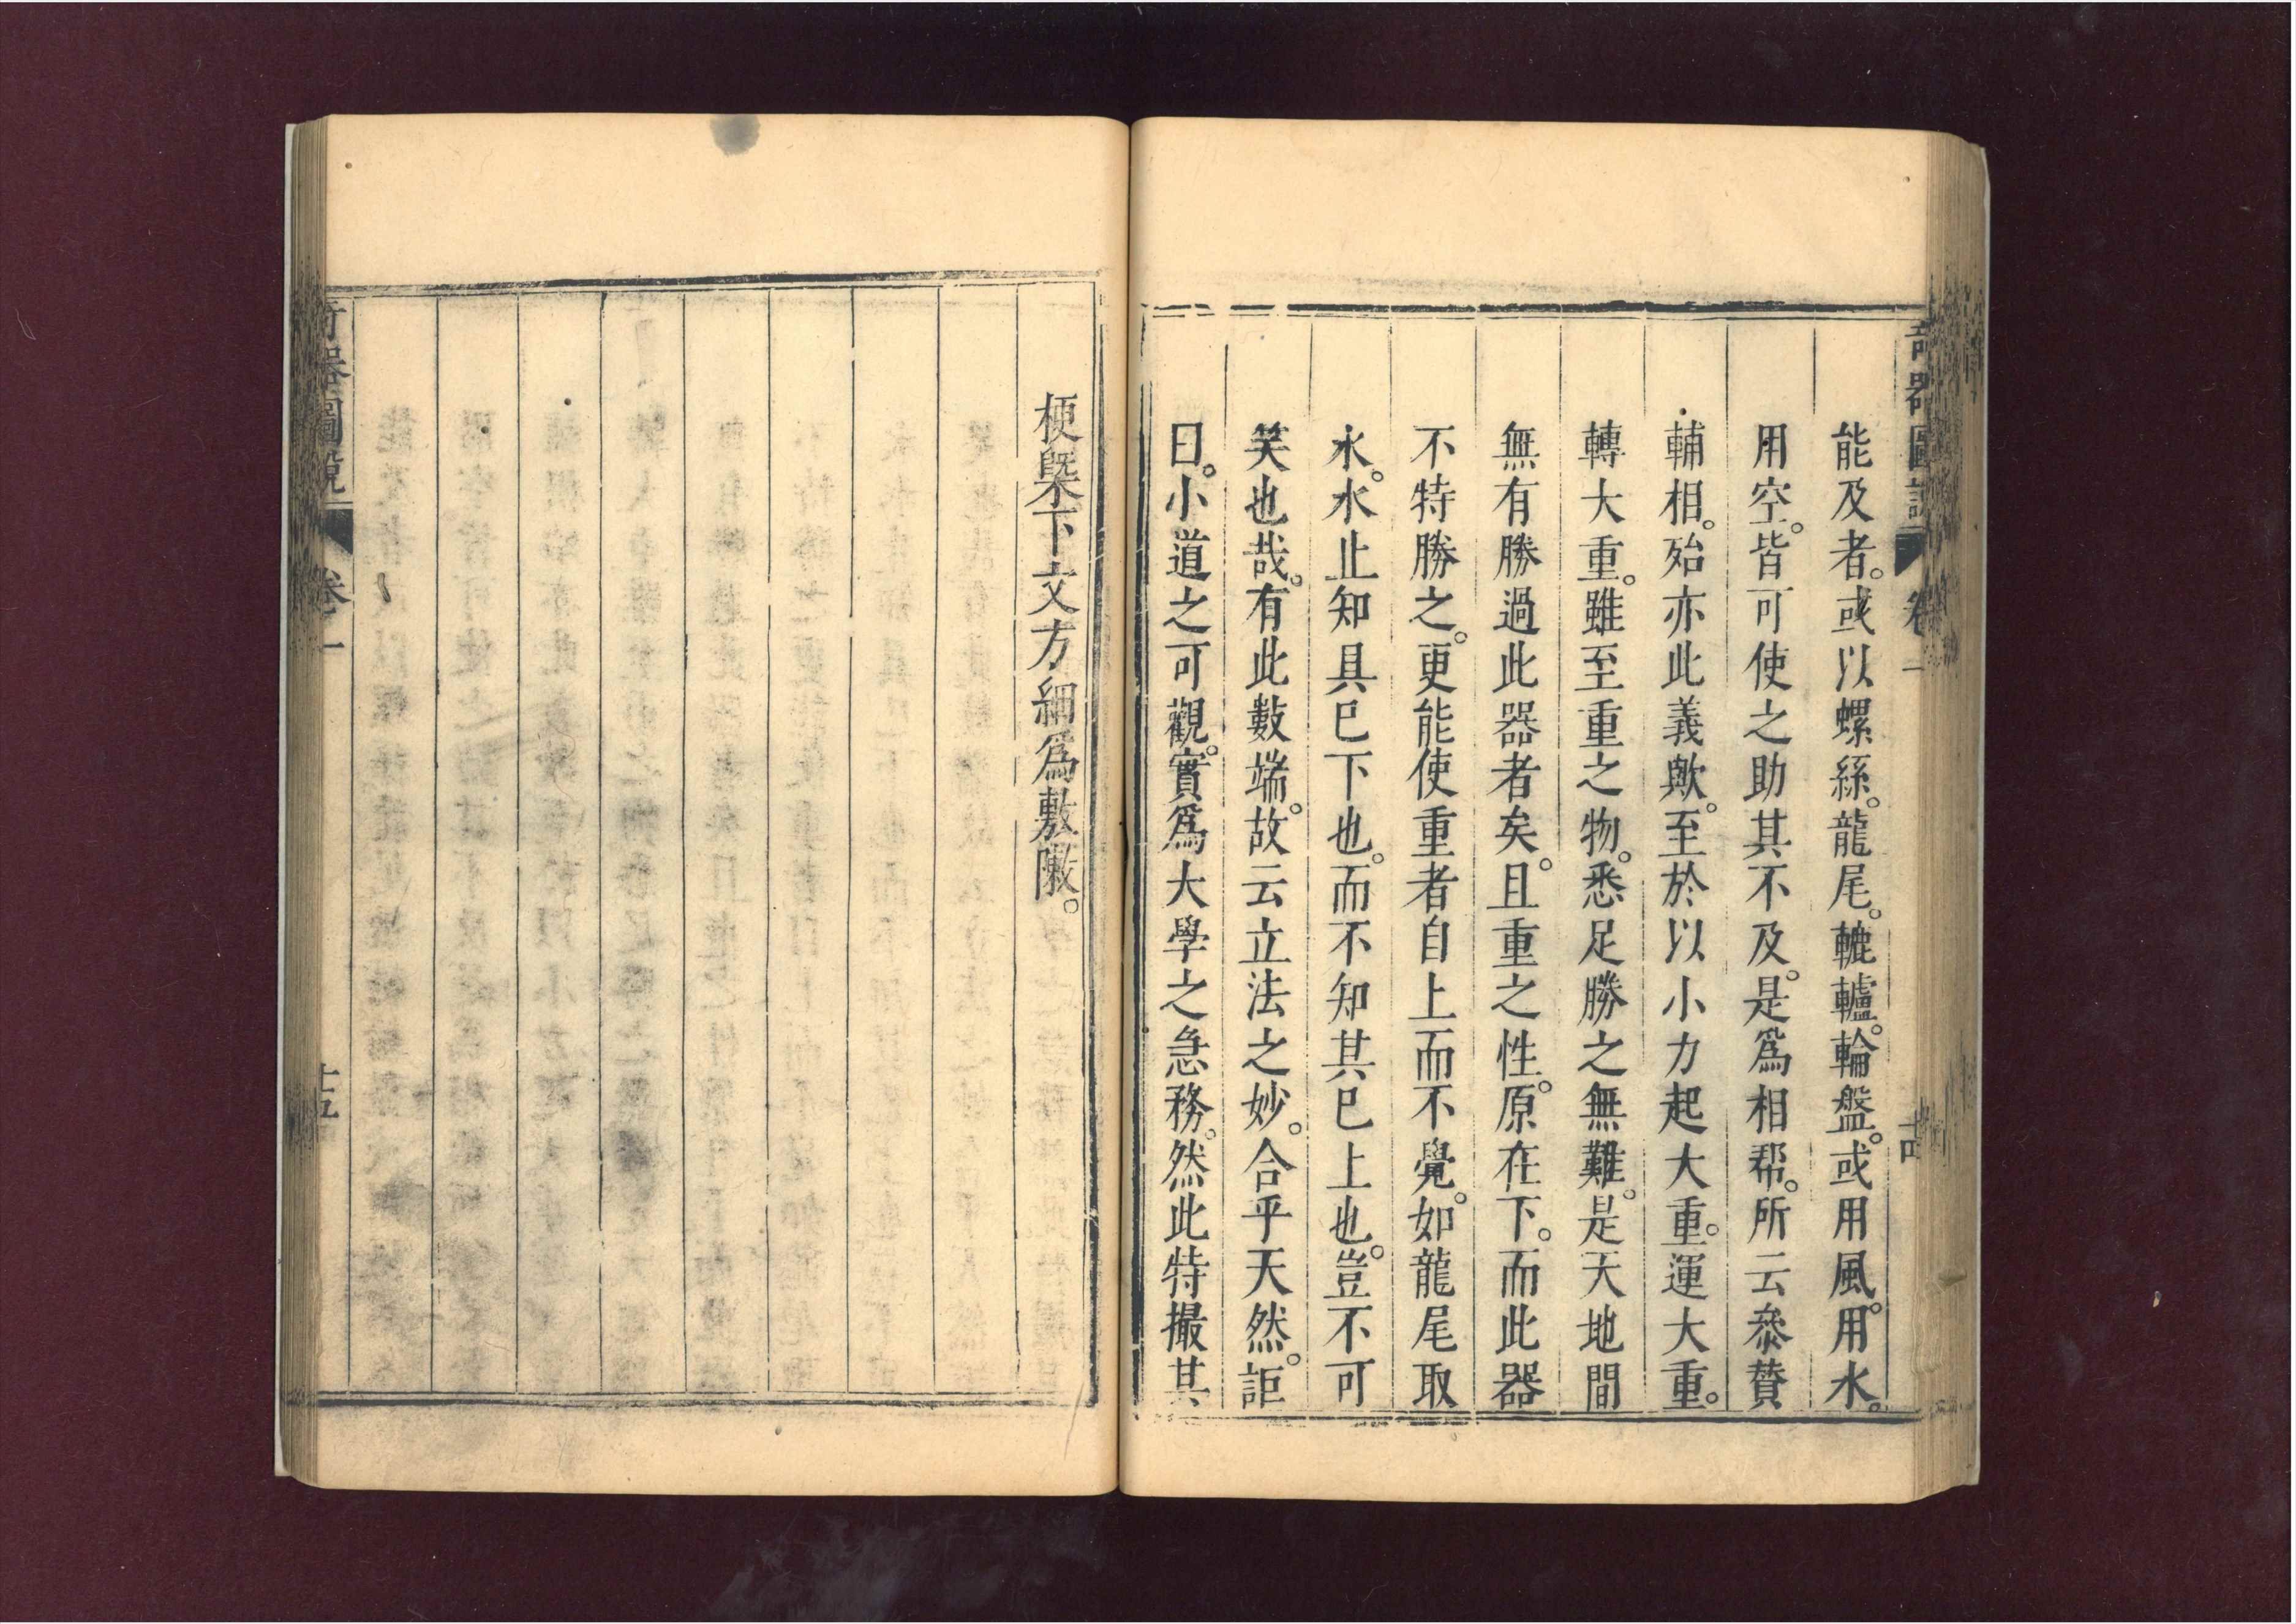 奇器圖說 卷一 十四
能及者。或以螺絲。龍尾。轆轤。輪盤。或用風。用水。
用空。皆可使之助其不及。是爲相帮。所云叅賛
輔相。殆亦此義歟。至於以小力起大重。運大重。
轉大重。雖至重之物。悉足勝之無難。是天地間
無有勝過此器者矣。且重之性。原在下。而此器
不特勝之。更能使重者自上而不覺。如龍尾取
水。水止知具已下也。而不知其已上也。豈不可
笑也哉。有此數端。故云立法之妙。合乎天然。詎
曰。小道之可觀。實爲大學之急務。然此特撮其
梗槩下文方細爲敷陳。
奇器圖說 卷一 十五